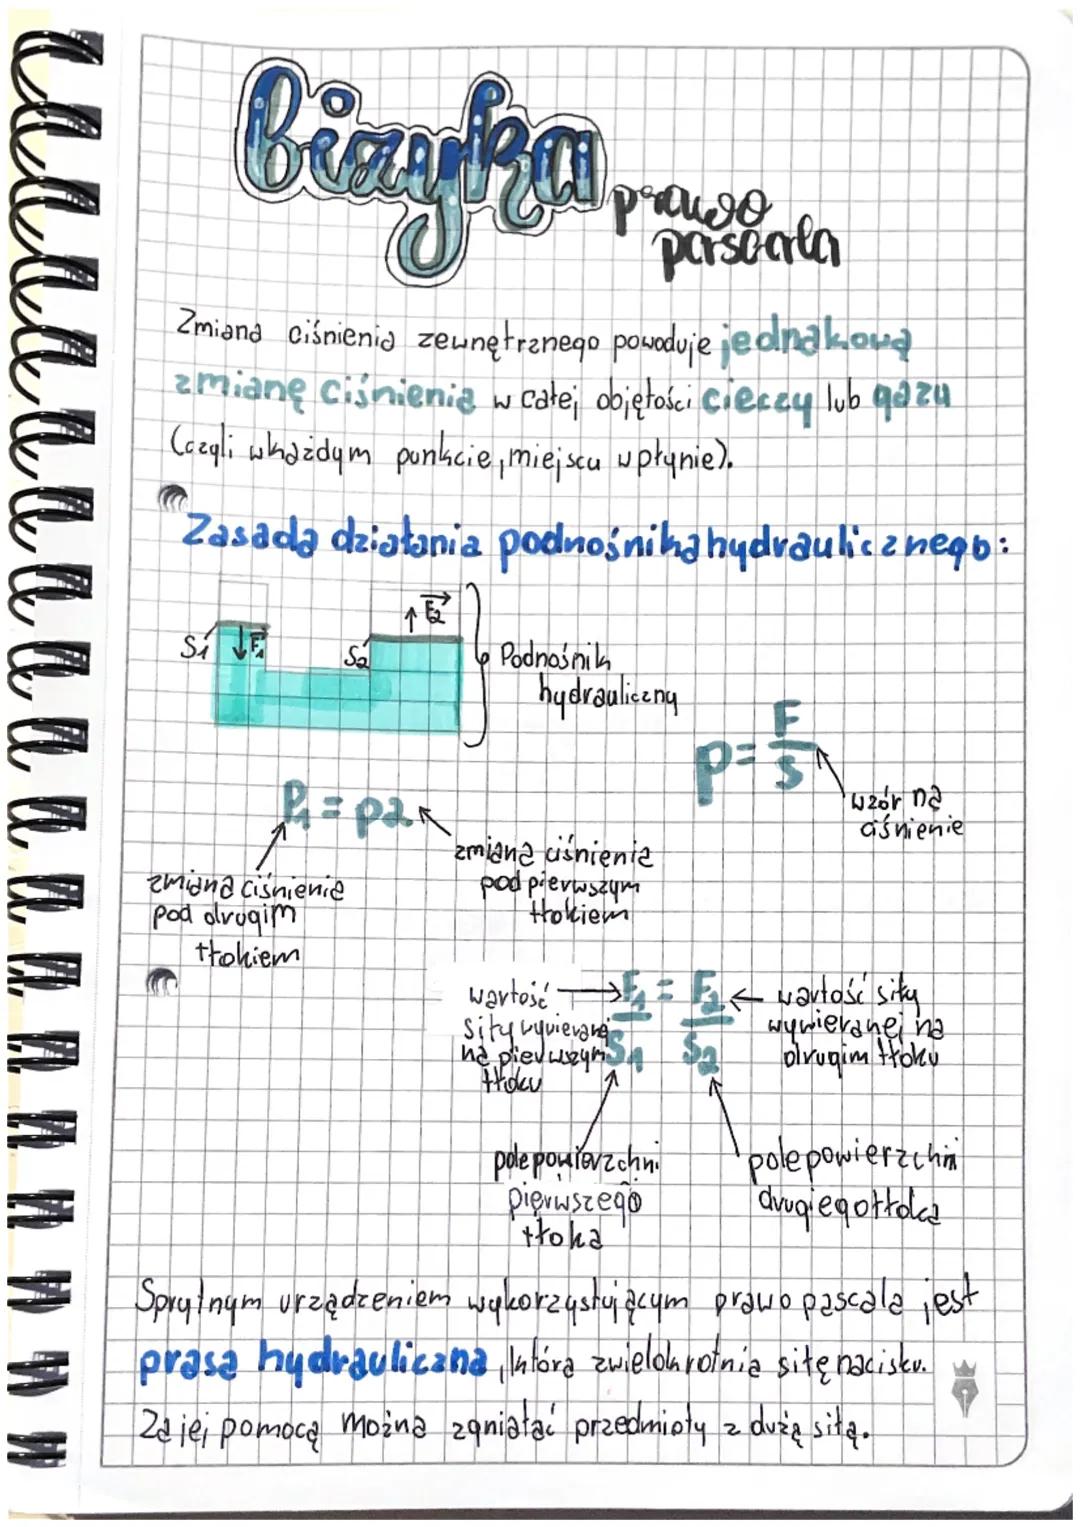 fizyka
prawo
pascala
Zmiana ciśnienia zewnętrznego powoduje jednakową
zmianę ciśnienia w całej objętości cieczy lub gazu
(czyli w każdym punkcie, miejscu w płynie).
Zasada działania podnośnika hydraulicznego:
S1 F1 S2 F2
Podnośnik
hydrauliczny
p = F/S
wzór na
ciśnienie
P1 = p2
zmiana ciśnienia
pod pierwszym
tłokiem
zmiana ciśnienia
pod drugim
tłokiem
F1/S1 = F2/S2
wartość
siły wywieranej
na pierwszym
tłoku
wartość siły
wywieranej na
drugim tłoku
pole powierzchni
pierwszego
tłoka
pole powierzchni
drugiego tłoka
Sprytnym urządzeniem wykorzystującym prawo pascala jest
prasa hydrauliczna, która zwielokrotnia siłę nacisku.
Za jej pomocą można zgniatać przedmioty z dużą siłą.